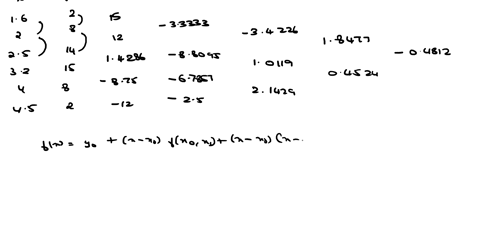 1.6 2 15
2 8 -3.3333 -3.4226
12 1.8477
2.5 14 -8.8095 -0.4812
1.4286 1.0119
3.2 15 -6.7857 0.4524
-8.75 2.1429
4 8 -2.5
-12
4.5 2
f(x) = y0 + (x-x0) f(x0, x1) + (x-x0) (x-